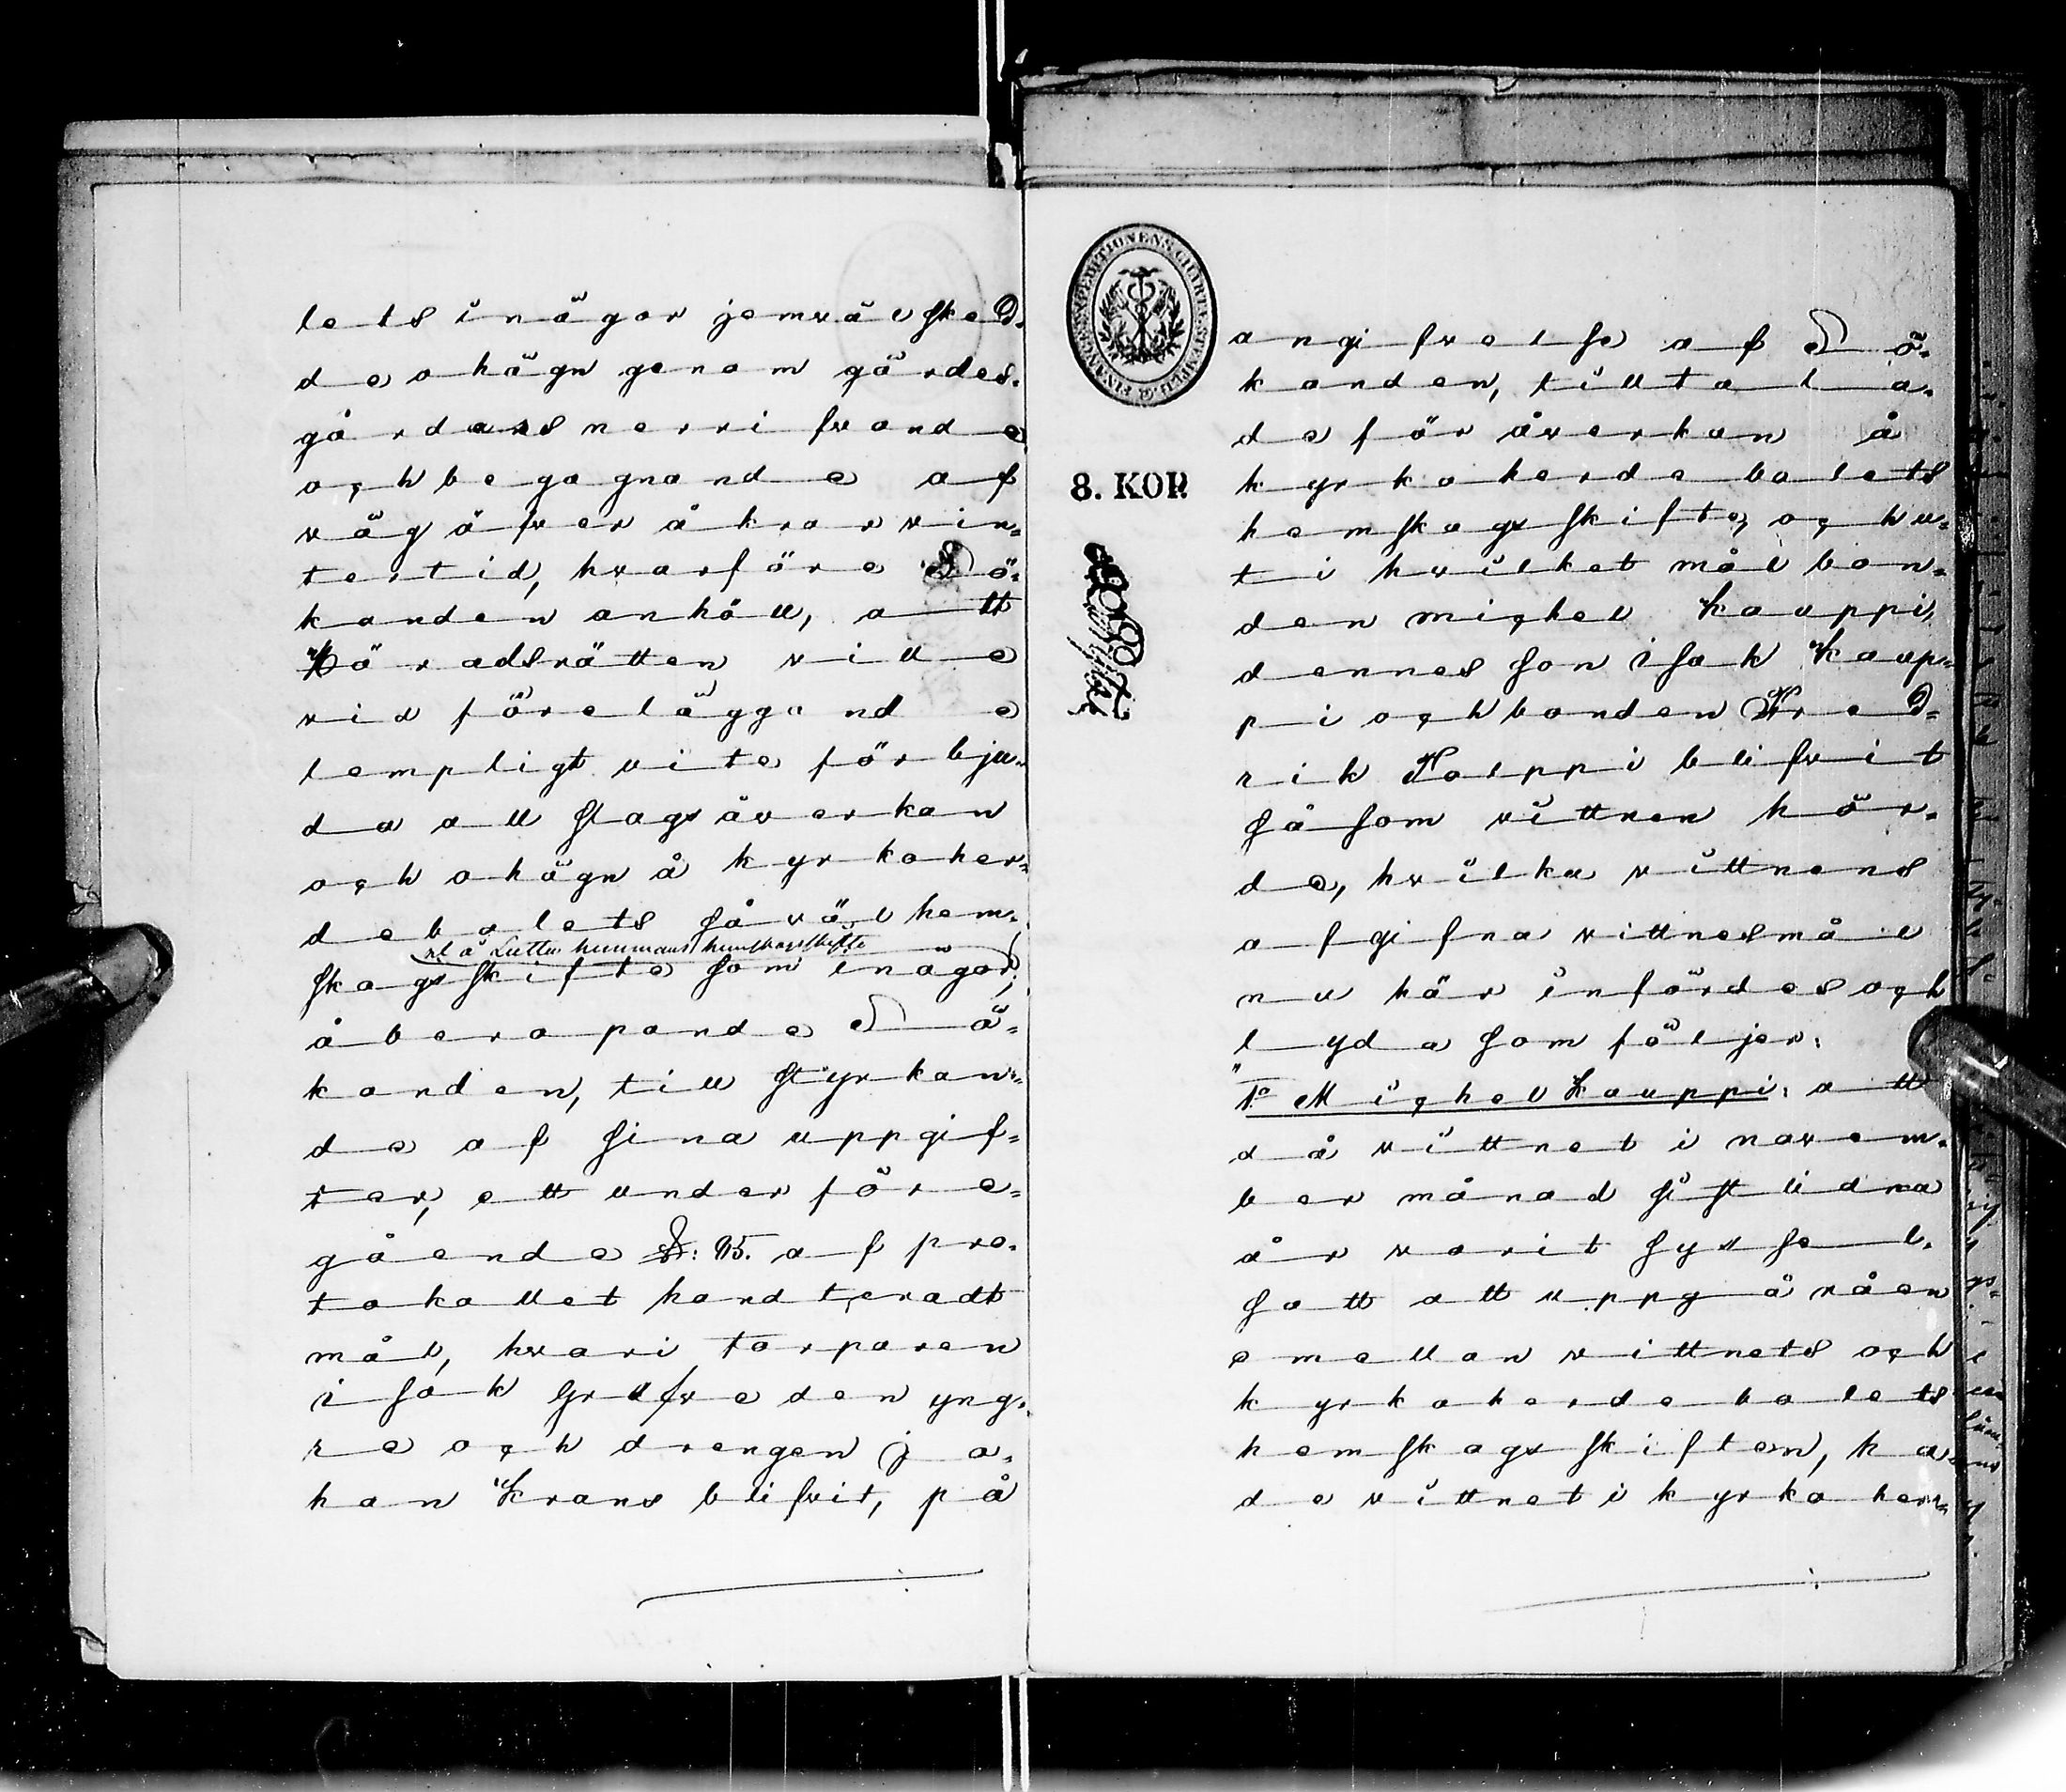 lets inägor jemväl sked-
de ohägn genom gärdes-
gårdars nerrifvande
och begagnande af
väg öfver åkrar vin-
tertid, hvarföre Sö-
kanden anhöll, att
Häradsrätten ville
vid föreläggande
lempligt vite förbju-
da all slags åverkan
och ohägn å kyrkoher-
debolets såväl hem-
skogsskifte som inägor;
åberopande Sö-
kanden, till styrkan-
de af sina uppgif-
ter, ett under före-
gående §: 95. af pro-
tokollet handteradt
mål, hvari torparen
Isak Grufve den yng-
re och drengen Jo-
han Krans blifvit, på
FINANCE EXPEDITIONENS CHARTÆ STEMPEL
8. KOP.
angifvelse af Sö-
kanden, tilltala-
de för åverkan å
kyrkoherdebolets
hemskogsskifte, och u-
ti hvilket mål bon-
den Michel Kauppi,
dennes son Isak Kaup-
pi och bonden Fred-
rik Palppi blifvit
såsom vittnen hör-
de, hvilka vittnens
afgifna vittnesmål
nu här infördes och
lyda som följer:
"1:o Michel Kauppi: att
då vittnet i novem-
ber månad sistlidna
år varit syssel-
satt att uppgå råen
emellan vittnets och
kyrkoherdebolets
hemskogsskiften, ha-
de vittnet i kyrkoher-